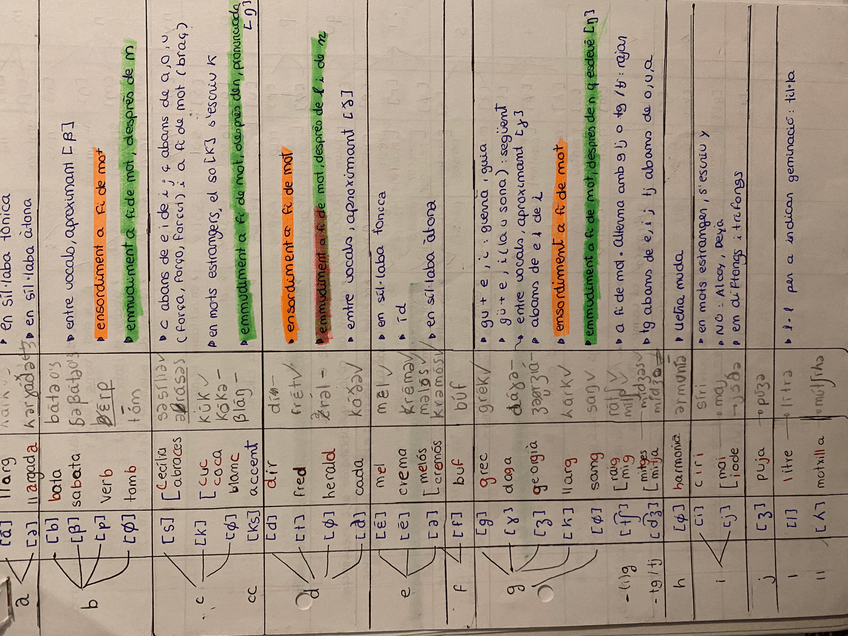 [á] llarg ▸ en síl·laba tònica
a [ə] llargada ▸ en síl·laba àtona
[b] bata bátəʊs
b [β] sabata ▸ entre vocals, aproximant [β]
[p] verb bɛ́rp ▸ ensordiment a fi de mot
[ϕ] tomb tóm ▸ emmudiment a fi de mot, després de m
[s] [Cecília səsíliə ▸ c abans de e i de i; ç abans de a, o, u,
abraces (força, forço, forçui) i a fi de mot (braç)
c [k] [cuc kúk ✓ ▸ en mots estrangers, el so [k] s'escriu k
coca kókə –
[ϕ] blanc bláŋ – ▸ emmudiment a fi de mot, després de n, pronunciada [ŋ]
cc [ks] accent
[d] dir dí –
d [t] fred frét ✓ ▸ ensordiment a fi de mot
[ϕ] herald əral – ▸ emmudiment a fi de mot, després de l i de n
[ð] cada káðə ✓ ▸ entre vocals, aproximant [ð]
[ɛ́] mel mɛ́l ✓ ▸ en síl·laba tònica
e [é] crema krémə ✓ ▸ íd
[ə] [melós məlós ✓ ▸ en síl·laba àtona
cremós krəmós ✓
f [f] buf búf
[g] grec grék ✓ ▸ gu + e, i : guerra, guia
▸ gü + e, i (la u sona) : següent
g [ɣ] daga dáɣə – ▸ entre vocals, aproximant [ɣ]
[ʒ] geòrgia ▸ abans de e i de i
[k] llarg ʎárk ✓ ▸ ensordiment a fi de mot
[ϕ] sang saŋ ✓ ▸ emmudiment a fi de mot, després de n q esdevé [ŋ]
-(i)g [tʃ] [raig ▸ a fi de mot. Alterna amb g/j o tg/tj : rajar
mig
-tg/tj [dʒ] [mitges ▸ tg abans de e, i ; tj abans de o, u, a
mitja
h [ϕ] harmonia ərmuníə ▸ lletra muda
[i] ciri síri ▸ en mots estrangers, s'escriu y
i [j] [mai → maj ▸ NO: Alcoy, Deya
iode → jɔ́də ▸ en diftongs i triftongs
j [ʒ] puja → púʒə
l [l] litre → lítrə ▸ l·l per a indicar geminació: til·la
ll [ʎ] motxilla → mutʃíʎə